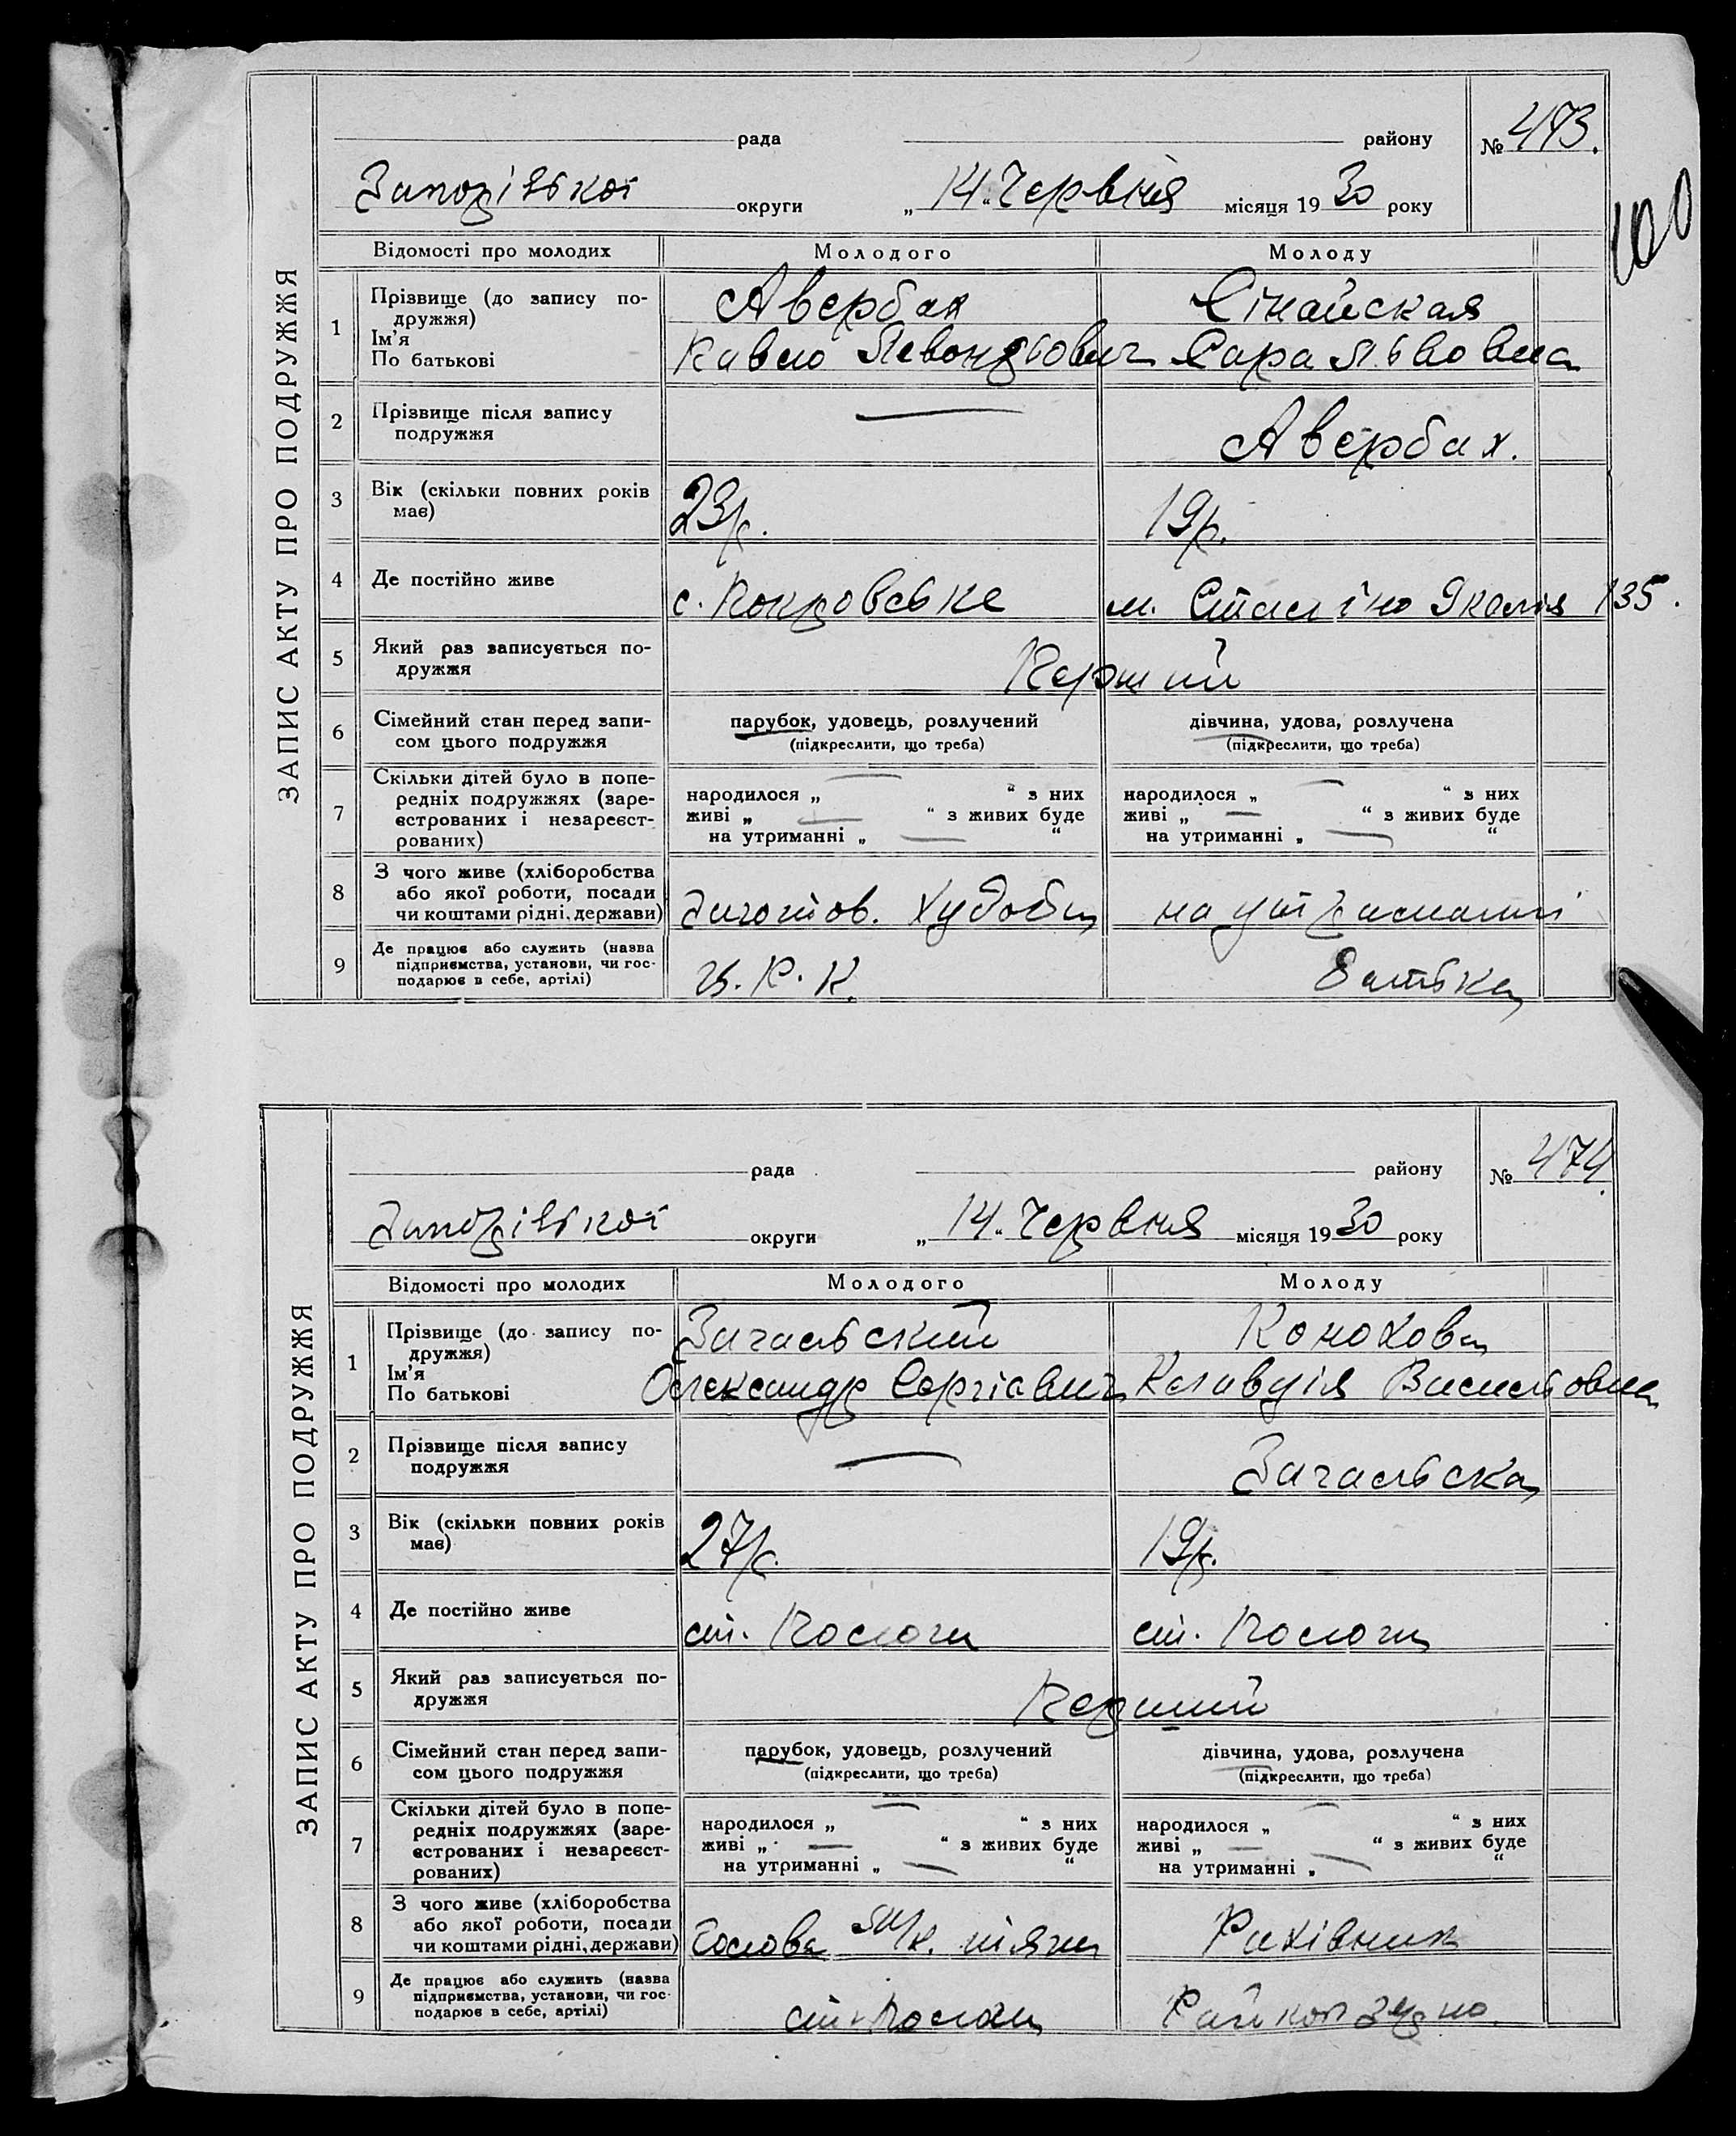 ЗАПИС АКТУ ПРО ПОДРУЖЖЯ
рада району № 473.
Запорізької округи „14“ Червня місяця 1930 року
100
Відомості про молодих Молодого Молоду
1 Прізвище (до запису по-
дружжя) Авербах Сінайская
Ім'я
По батькові Павло Левонтьович Сара Львовна
2 Прізвище після запису
подружжя — Авербах.
3 Вік (скільки повних років
має) 23р. 19р.
4 Де постійно живе с. Покровське м. Сталіно 9 калія 135.
5 Який раз записується по-
дружжя Перший
6 Сімейний стан перед запи-
сом цього подружжя
парубок, удовець, розлучений дівчина, удова, розлучена
(підкреслити, що треба) (підкреслити, що треба)
7 Скільки дітей було в попе-
редніх подружжях (заре-
єстрованих і незареєст-
рованих)
народилося „ — “ з них народилося „ — “ з них
живі „ — “ з живих буде живі „ — “ з живих буде
на утриманні „ — “ на утриманні „ — “
8 З чого живе (хліборобства
або якої роботи, посади
чи коштами рідні, держави) Заготов. худоби на утриманні
9 Де працює або служить (назва
підприємства, установи, чи гос-
подарює в себе, артілі) Р. К. батька
ЗАПИС АКТУ ПРО ПОДРУЖЖЯ
рада району № 474.
Запорізької округи „14“ Червня місяця 1930 року
Відомості про молодих Молодого Молоду
1 Прізвище (до запису по-
дружжя) Загальский Конохова
Ім'я
По батькові Олександр Сергієвич Клавдія Васильовна
2 Прізвище після запису
подружжя — Загальска
3 Вік (скільки повних років
має) 27р. 19р.
4 Де постійно живе ст. Пологи ст. Пологи
5 Який раз записується по-
дружжя Перший
6 Сімейний стан перед запи-
сом цього подружжя
парубок, удовець, розлучений дівчина, удова, розлучена
(підкреслити, що треба) (підкреслити, що треба)
7 Скільки дітей було в попе-
редніх подружжях (заре-
єстрованих і незареєст-
рованих)
народилося „ — “ з них народилося „ — “ з них
живі „ — “ з живих буде живі „ — “ з живих буде
на утриманні „ — “ на утриманні „ — “
8 З чого живе (хліборобства
або якої роботи, посади
чи коштами рідні, держави) Голова тяги Рахівник
9 Де працює або служить (назва
підприємства, установи, чи гос-
подарює в себе, артілі) ст. Пологи